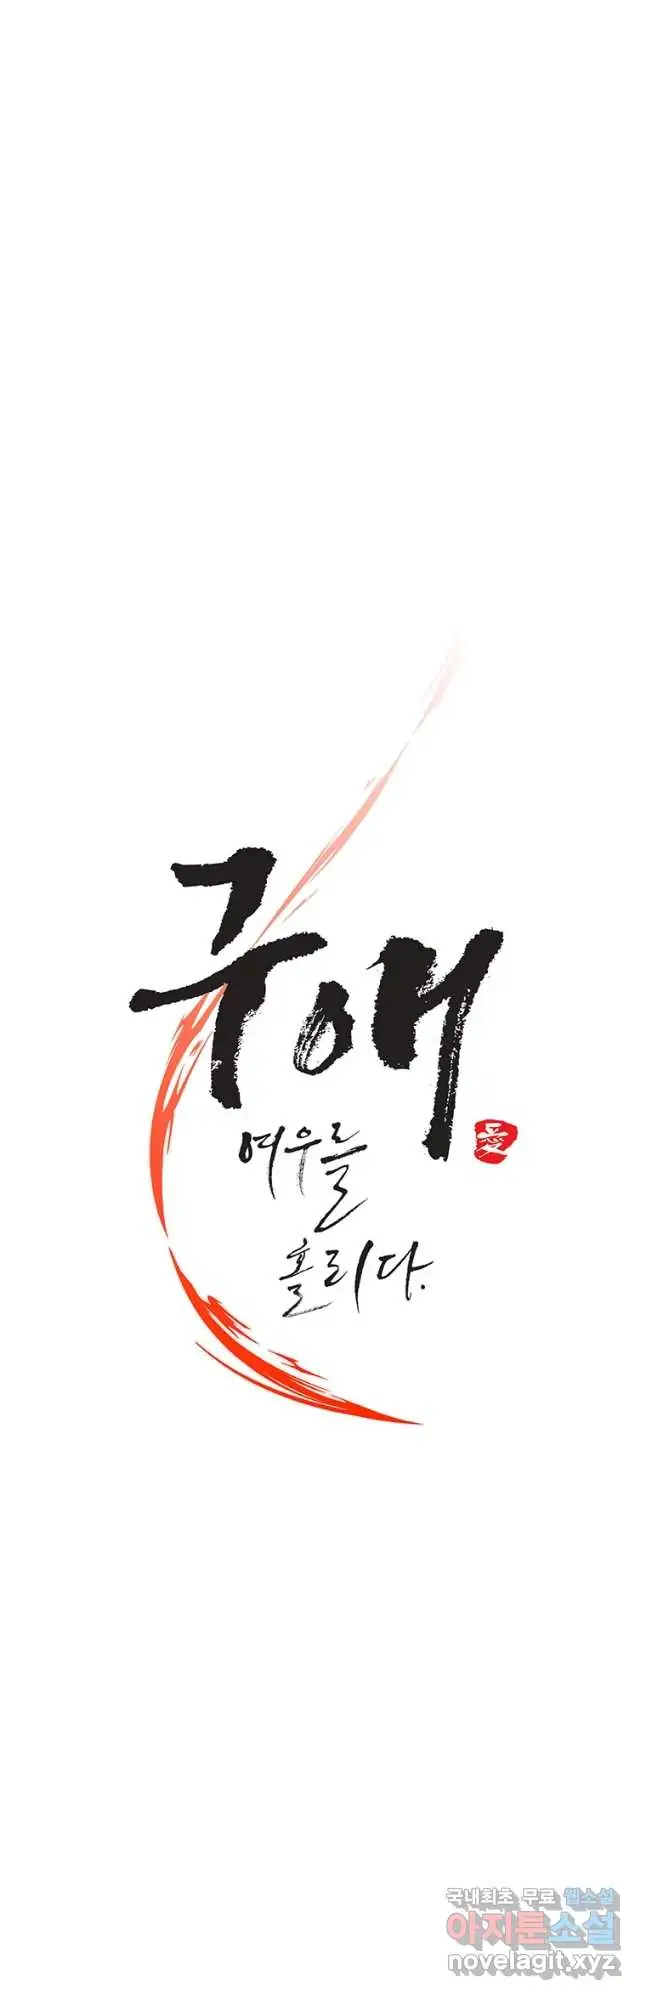 구애
여우를
愛
홀리다.
국내최초 무료 웹소설
아지툰소설
novelagit.xyz